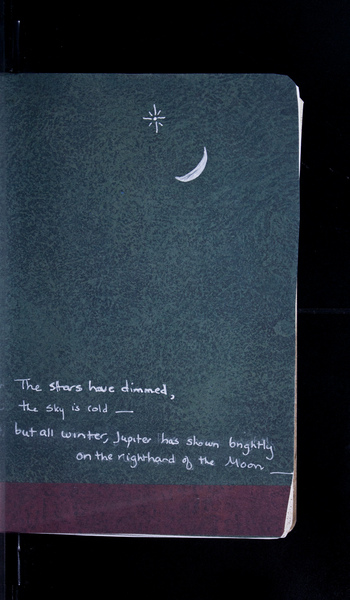 The stars have dimmed,
the sky is cold —
but all winter, Jupiter has shown brightly
on the righthand of the Moon —